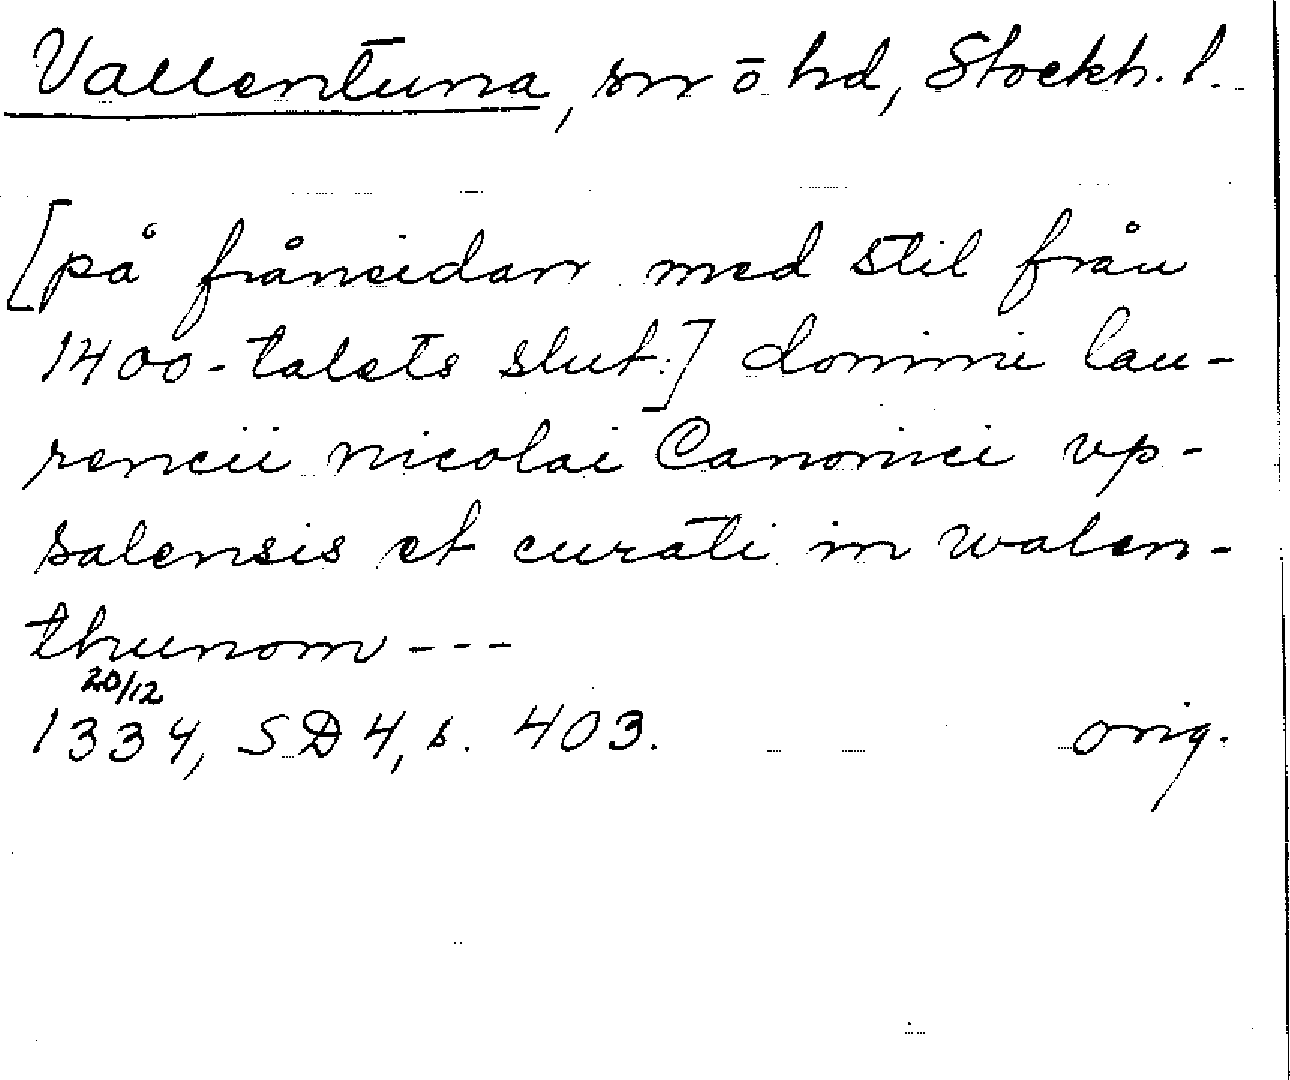 Vallentuna, sn o hd, Stockh. l.
[på frånsidan med stil från
1400-talets slut:] domini lau-
rencii nicolai Canonici vp-
salensis et curati in walen-
thunom ---
20/12
1334, SD 4, s. 403. orig.